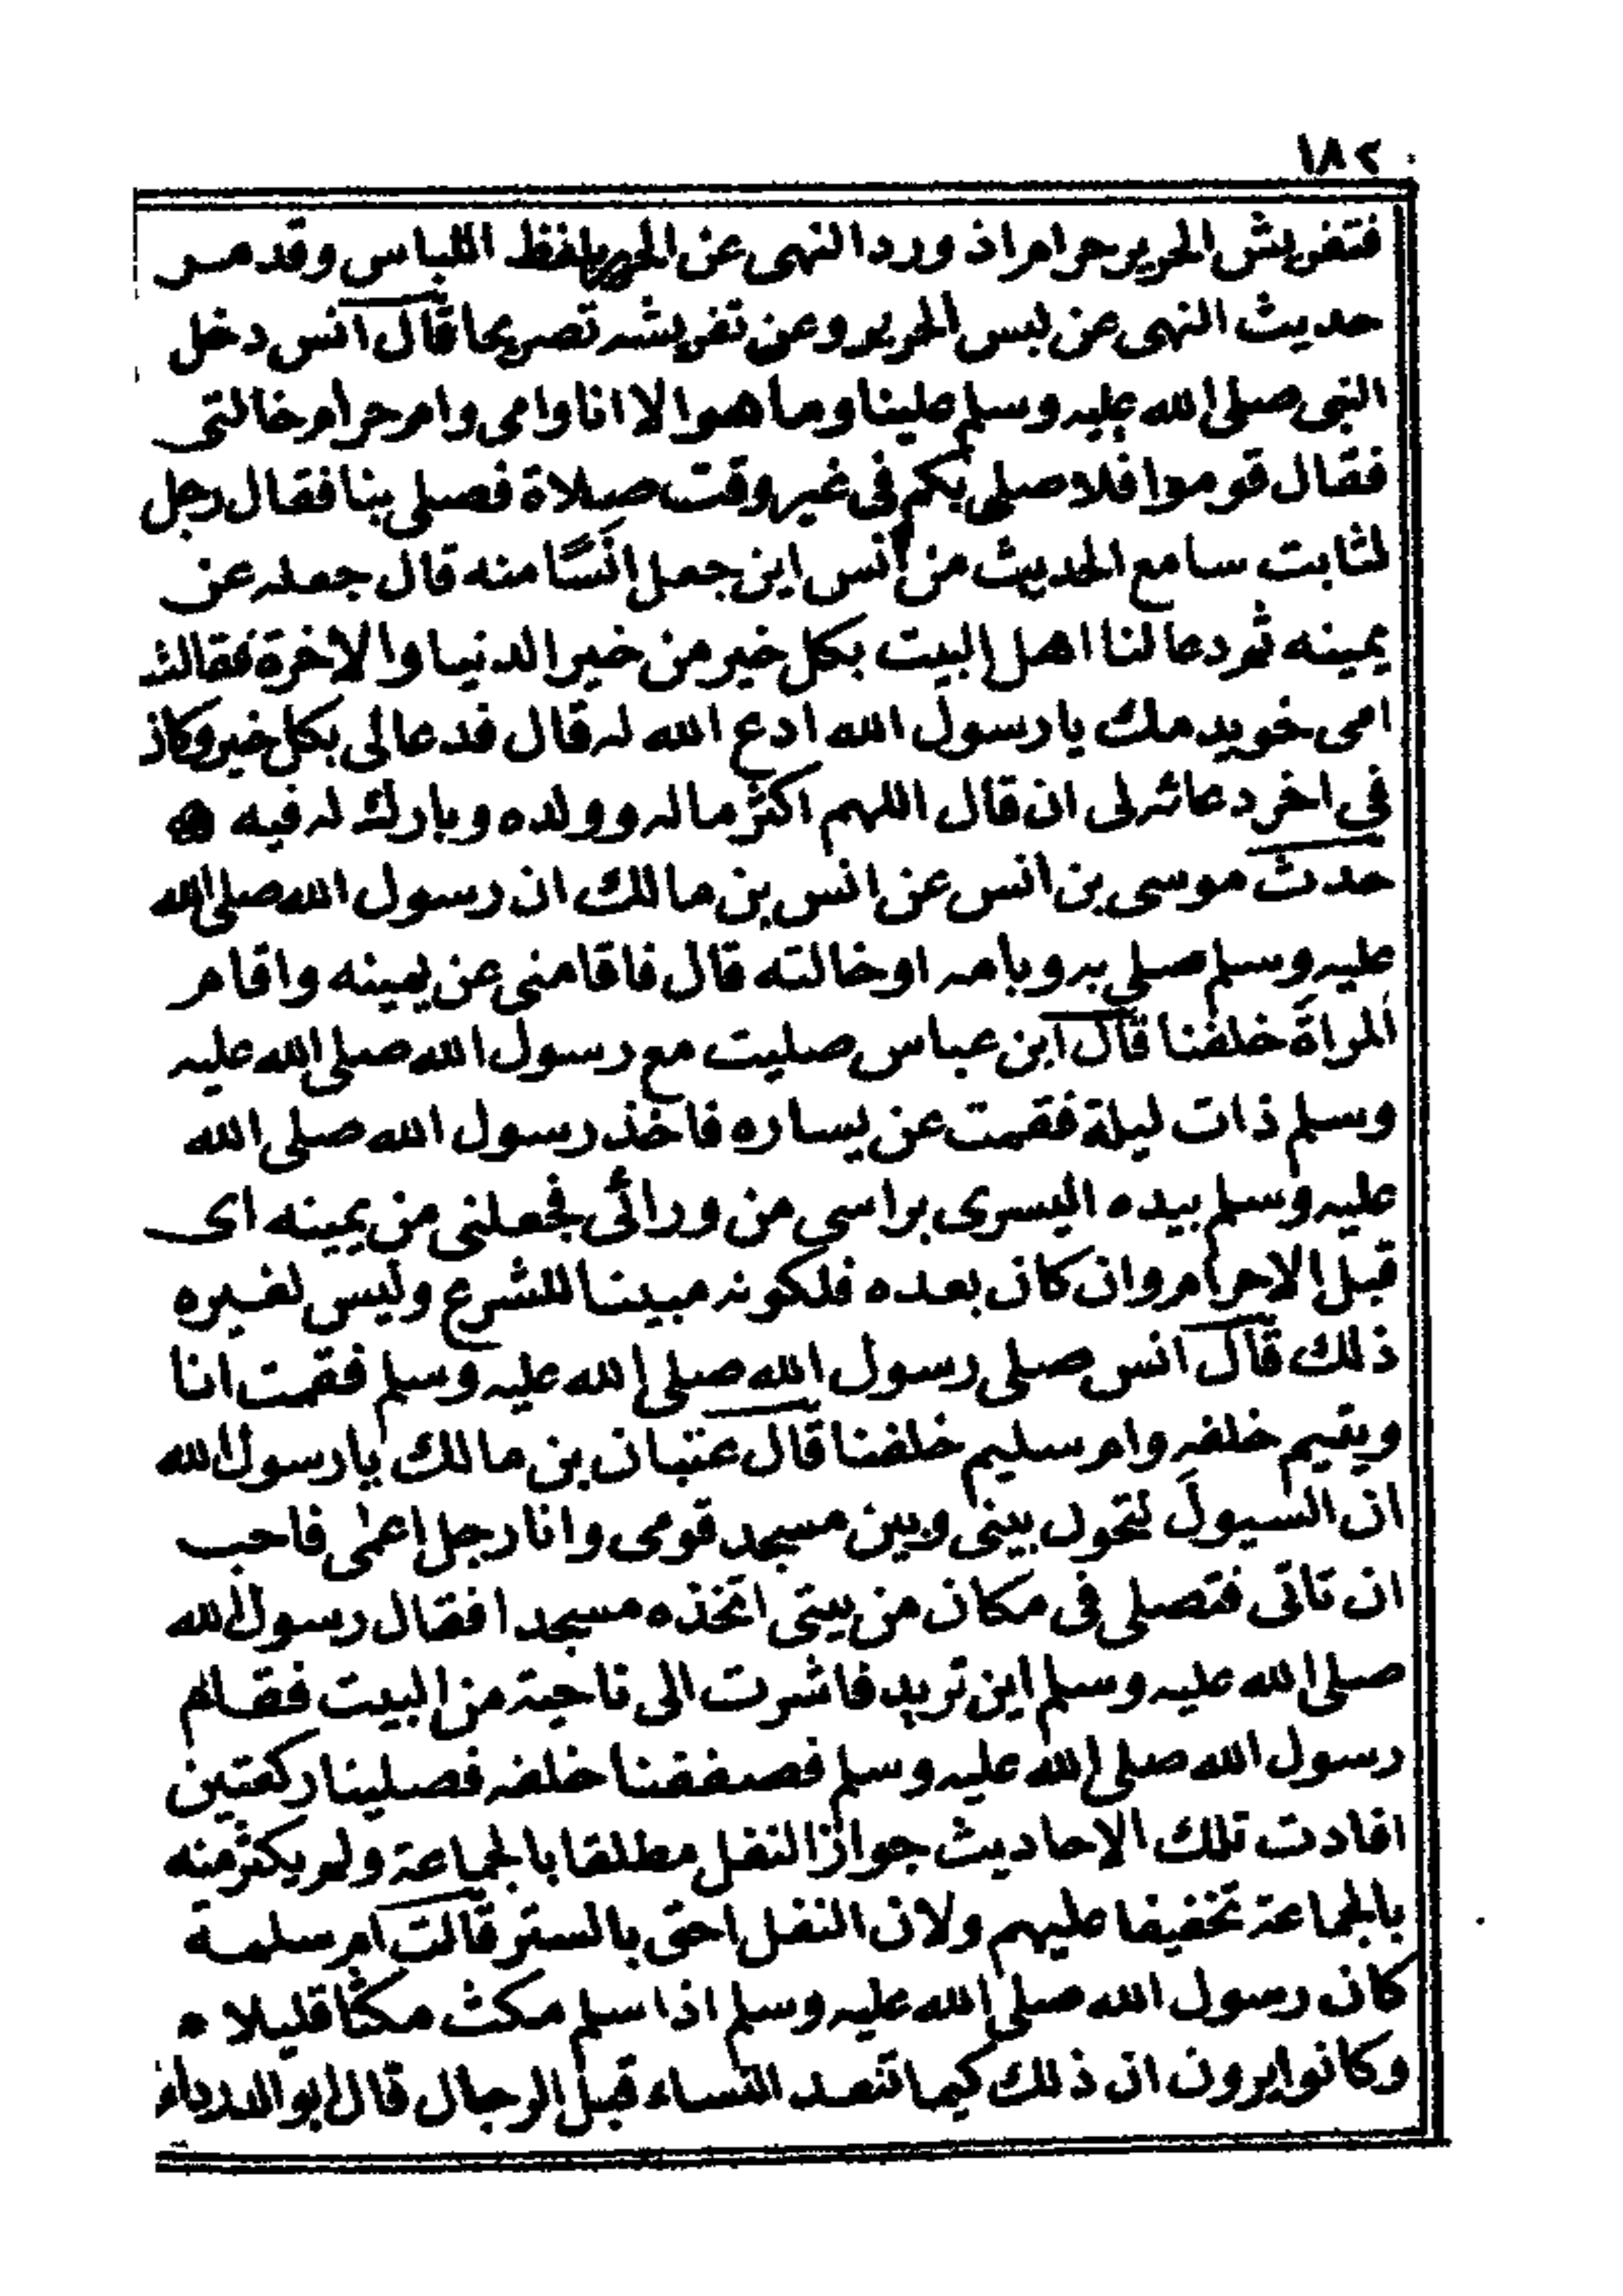 ١٨٢
فتفريش الحرير حرام اذ ورد النهى عن الحرير بلفظ اللباس وقد مر
حديث النهى عن لبس الحرير وعن تفريشه تصريحا قال انس دخل
النبى صلى الله عليه وسلم علينا وما هو الا انا وامى وام حرام خالتى
فقال قوموا فلاصلى بكم فى غير وقت صلاة فصلى بنا فقال رجل
لثابت سامع الحديث من انس اين جعل انسًا منه قال جعله عن
يمينه ثم دعا لنا اهل البيت بكل خير من خير الدنيا والاخرة فقالت
امى خويدمك يا رسول الله ادع الله له قال فدعا لى بكل خير وكان
فى اخر دعائه لى ان قال اللهم اكثر ماله وولده وبارك له فيه ه
حدث موسى بن انس عن انس بن مالك ان رسول الله صلى الله
عليه وسلم صلى به وبامه او خالته قال فاقامنى عن يمينه واقام
المراةَ خلفنا قال ابن عباس صليت مع رسول الله صلى الله عليه
وسلم ذات ليلة فقمت عن يساره فاخذ رسول الله صلى الله
عليه وسلم بيده اليسرى براسى من ورائى فجعلنى من يمينه اى
قبل الاحرام وان كان بعده فلكونه مبينا للشرع وليس لغيره
ذلك قال انس صلى رسول الله صلى الله عليه وسلم فقمت انا
ويتيم خلفه وام سليم خلفنا قال عتبان بن مالك يا رسول الله
ان السيولَ لتحول بينى وبين مسجد قومى وانا رجل اعمى فاحب
ان تاتى فتصلى فى مكان من بيتى اتخذه مسجدا فقال رسول الله
صلى الله عليه وسلم اين تريد فاشرت الى ناحية من البيت فقام
رسول الله صلى الله عليه وسلم فصففنا خلفه فصلينا ركعتين
افادت تلك الاحاديث جواز النفل مطلقا بالجماعة ولم يكثر منه
بالجماعة تخفيفا عليهم ولان النفل احق بالستر قالت ام سلمة
كان رسول الله صلى الله عليه وسلم اذا سلم مكث مكثا قليلا *
وكانوا يرون ان ذلك كيما تنفد النساء قبل الرجال قال ابو الدرداء